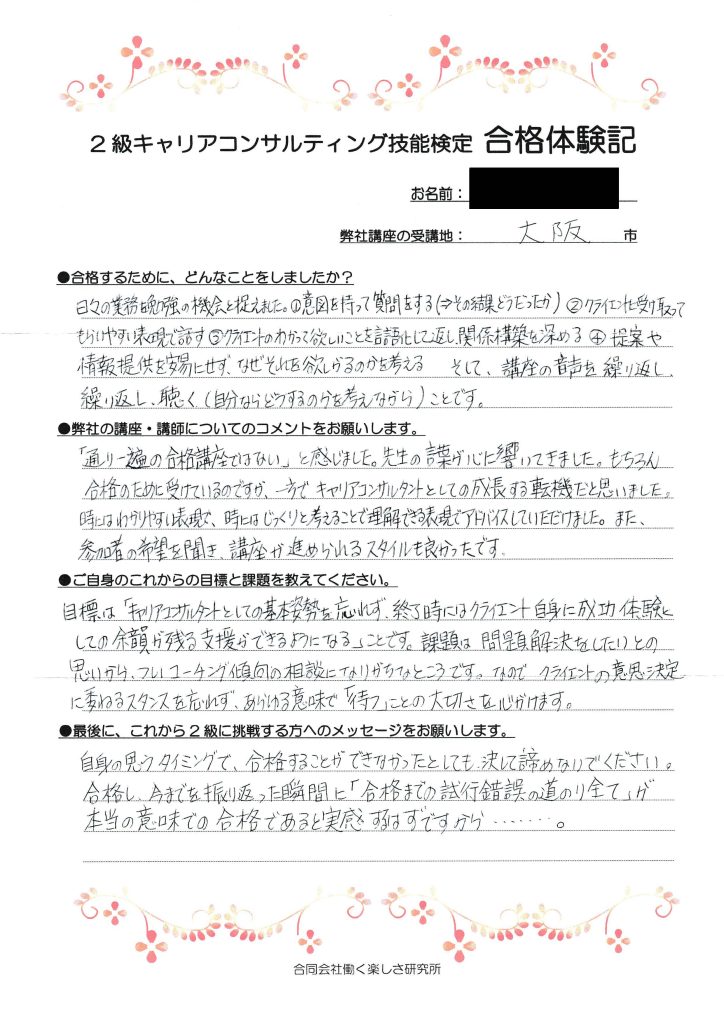 2級キャリアコンサルティング技能検定 合格体験記
お名前：
弊社講座の受講地： 大阪 市
●合格するために、どんなことをしましたか？
日々の業務を勉強の機会と捉えました。①意図を持って質問をする(⇒その結果どうだったか) ②クライエントに受け取って
もらいやすい表現で話す ③クライエントのわかって欲しいことを言語化して返し関係構築を深める ④提案や
情報提供を安易にせず、なぜそれを欲しがるのかを考える そして、講座の音声を繰り返し、
繰り返し、聴く(自分ならどうするのかを考えながら)ことです。
●弊社の講座・講師についてのコメントをお願いします。
「通り一遍の合格講座ではない」と感じました。先生の言葉が心に響いてきました。もちろん
合格のために受けているのですが、一方でキャリアコンサルタントとしての成長する転機だと思いました。
時にはわかりやすい表現で、時にはじっくりと考えることで理解できる表現でアドバイスしていただけました。また、
参加者の希望を聞き、講座が進められるスタイルも良かったです。
●ご自身のこれからの目標と課題を教えてください。
目標は「キャリアコンサルタントとしての基本姿勢を忘れず、終了時にはクライエント自身に成功体験と
しての余韻が残る支援ができるようになる」ことです。課題は 問題解決をしたいとの
思いから、ついコーチング傾向の相談になりがちなところです。なので クライエントの意思決定
に委ねるスタンスを忘れず、あらゆる意味で「待つ」ことの大切さを心がけます。
●最後に、これから2級に挑戦する方へのメッセージをお願いします。
自身の思うタイミングで、合格することができなかったとしても、決して諦めないでください。
合格し、今までを振り返った瞬間に「合格までの試行錯誤の道のり全て」が
本当の意味での合格であると実感するはずですから……。
合同会社働く楽しさ研究所